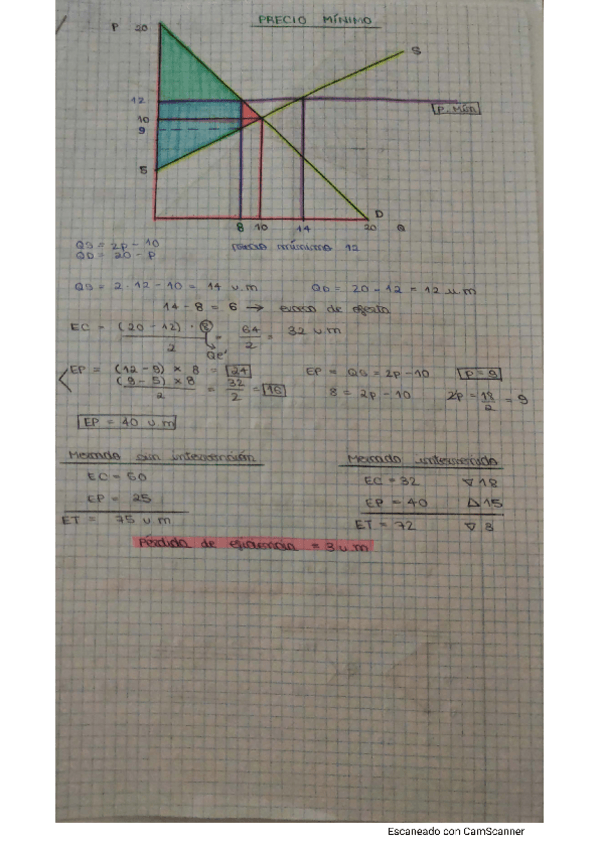 PRECIO MÍNIMO
P 20
S
12
P. Mín
10
9
5
D
8 10 14 20 Q
QS = 2p - 10
QD = 20 - P
precio mínimo 12
QS = 2·12 - 10 = 14 u.m QD = 20 - 12 = 12 u m
14 - 8 = 6 → exceso de oferta
EC = (20 - 12) · 8 / 2 = 64 / 2 = 32 u m
QE'
EP = (12 - 9) × 8 = 24 EP = QS = 2p - 10 P = 9
(9 - 5) × 8 / 2 = 32 / 2 = 16 8 = 2p - 10 2p = 18 / 2 = 9
EP = 40 u m
Mercado sin intervención Mercado intervenido
EC = 50 EC = 32 ▽ 18
EP = 25 EP = 40 △ 15
ET = 75 u m ET = 72 ▽ 3
Pérdida de eficiencia = 3 u.m
Escaneado con CamScanner